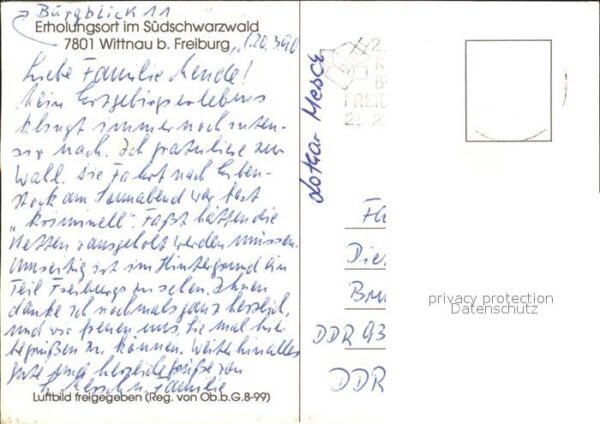 Burgblick 11
Erholungsort im Südschwarzwald
7801 Wittnau b. Freiburg, 20.3.90
Liebe Familie Mende!
Mein Erzgebirgserlebnis
klingt immer noch inten-
siv nach. Ich gratuliere zur
Wahl. Die Fahrt nach Eiben-
stock am Sonnabend war fast
"kriminell". Fast hätten die
Ketten rausgeholt werden müssen.
Umseitig ist im Hintergrund ein
Teil Freiburgs zu sehen. Ihnen
danke ich nochmals ganz herzlich,
und wir freuen uns, Sie mal hier
begrüßen zu können. Weiterhin alles
Gute und herzliche Grüße von
L. Mersch u. Familie
Luftbild freigegeben (Reg. von Ob.b.G.8-99)
Lothar Mesch
FREIB
21. 2
F
Die
Br
DDR 93
DDR
privacy protection
Datenschutz